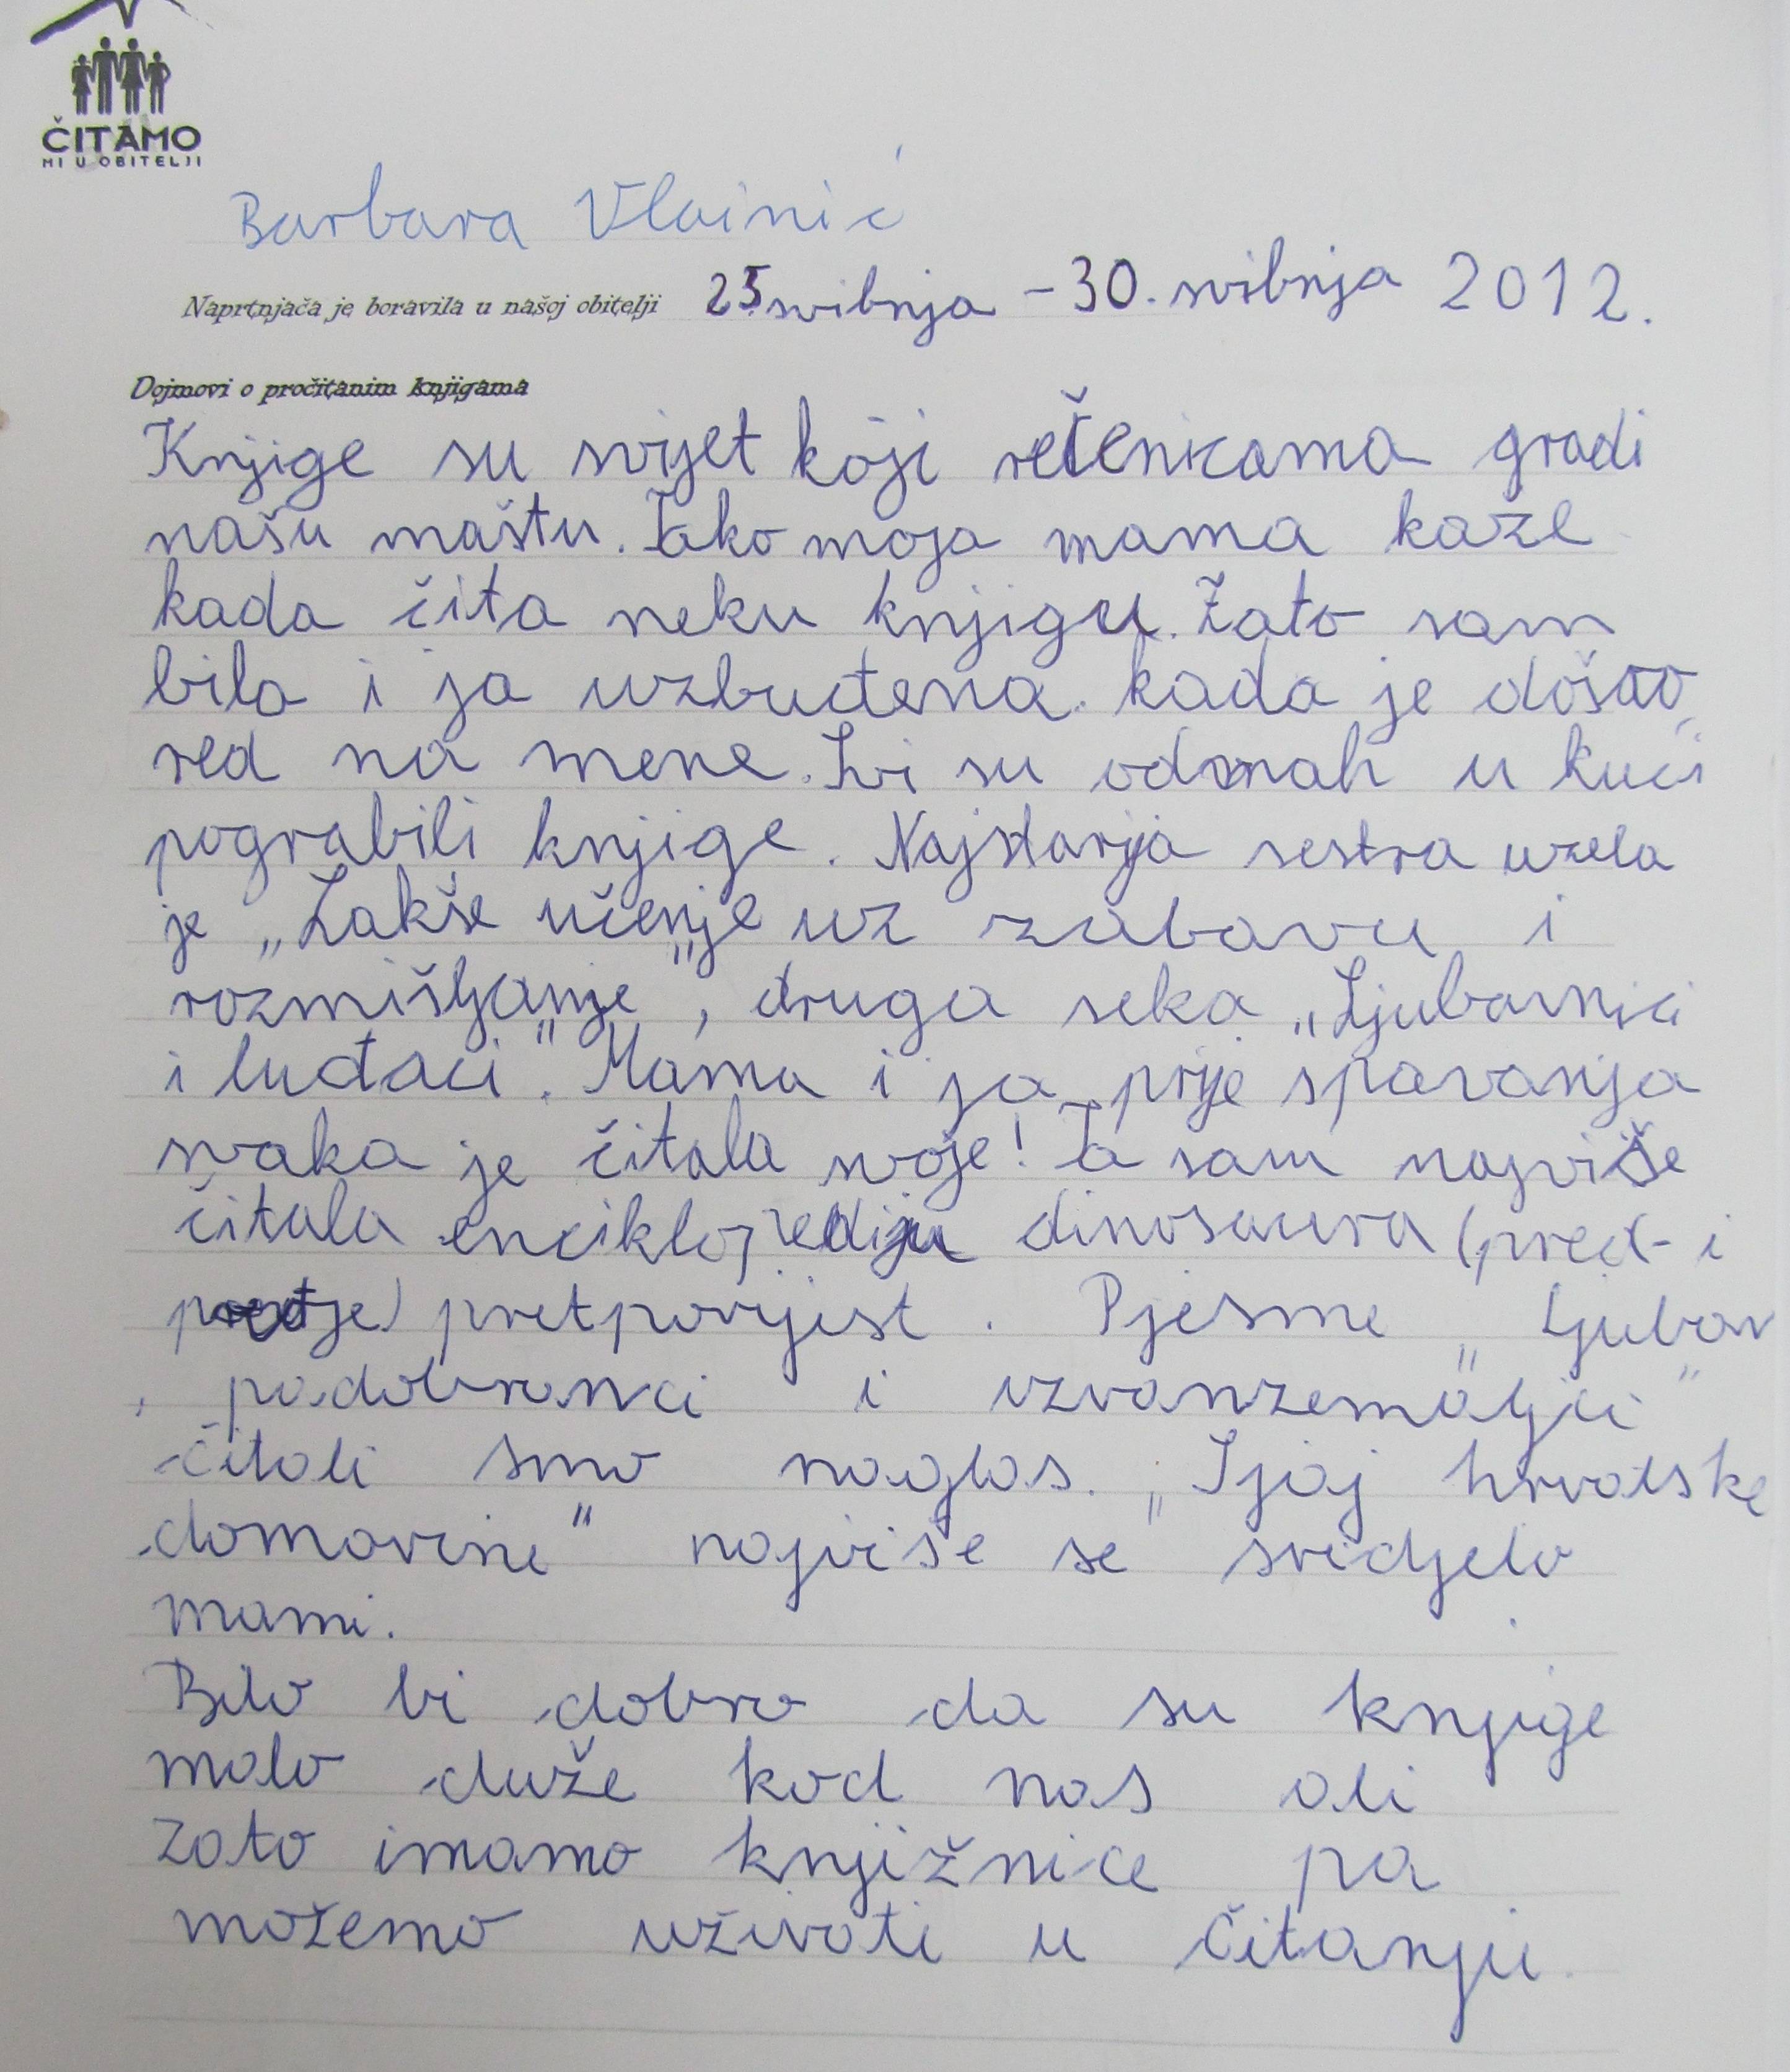 ČITAMO
MI U OBITELJI
Barbara Vlainić
Naprtnjača je boravila u našoj obitelji 25 svibnja - 30. svibnja 2012.
Dojmovi o pročitanim knjigama
Knjige su svijet koji rečenicama gradi
našu maštu. Tako moja mama kaže
kada čita neku knjigu. Zato sam
bila i ja uzbuđena kada je došao
red na mene. Svi su odmah u kući
pograbili knjige. Najstarija sestra uzela
je „Lakše učenje uz zabavu i
razmišljanje", druga seka „Ljubavnici
i luđaci". Mama i ja prije spavanja
svaka je čitala svoje! Ja sam najviše
čitala enciklopediju dinosaura (pred- i
pretpovijest. Pjesme „Ljubav
, padobranci i izvanzemaljci"
čitali smo naglas. „Sjaj hrvatske
domovine" najviše se svidjelo
mami.
Bilo bi dobro da su knjige
malo duže kod nas ali
zato imamo knjižnice pa
možemo uživati u čitanju.